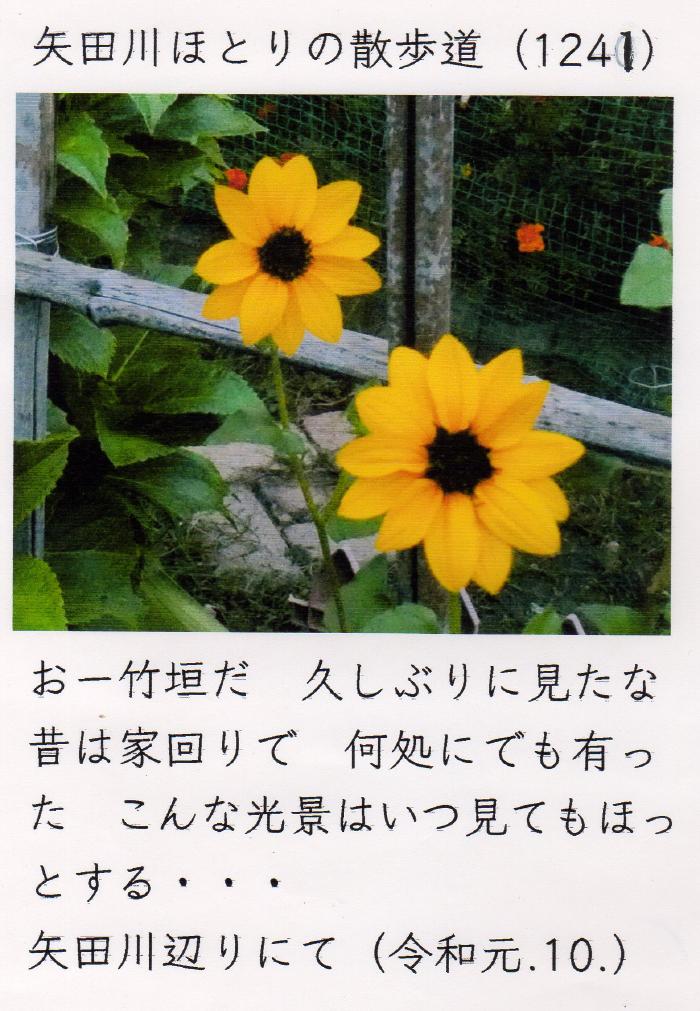 矢田川ほとりの散歩道（1241）
おー竹垣だ　久しぶりに見たな
昔は家回りで　何処にでも有っ
た　こんな光景はいつ見てもほっ
とする・・・
矢田川辺りにて（令和元.10.）